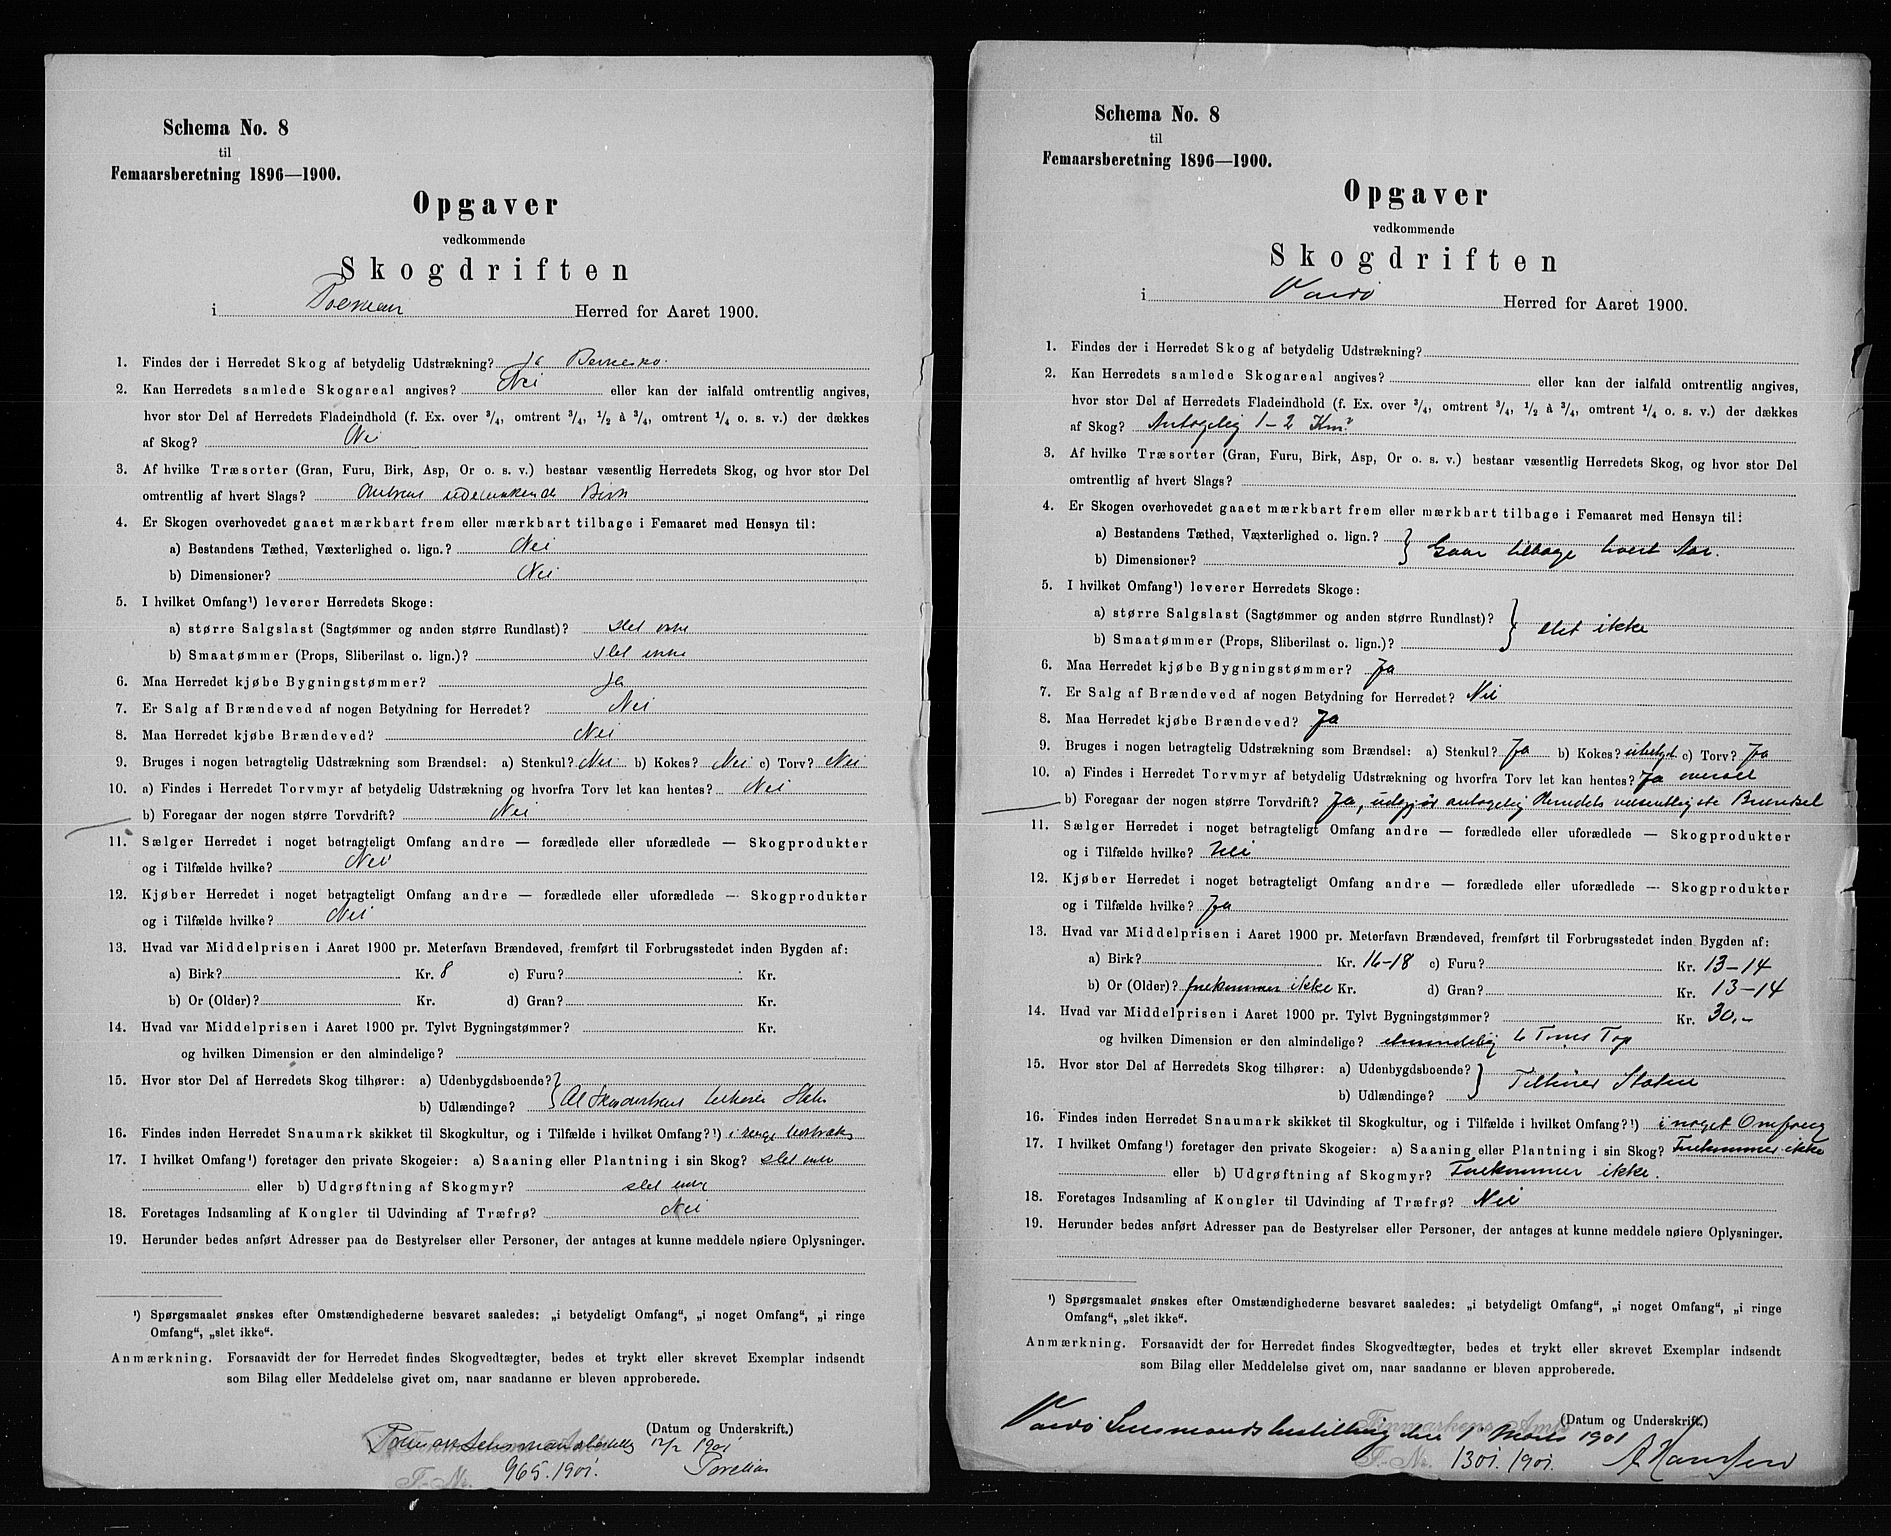 Schema No. 8
til
Femaarsberetning 1896—1900.
Opgaver
vedkommende
Skogdriften
i Herred for Aaret 1900.
1. Findes der i Herredet Skog af betydelig Udstrækning? Ja
2. Kan Herredets samlede Skogareal angives? Nei eller kan der ialfald omtrentlig angives,
hvor stor Del af Herredets Fladeindhold (f. Ex. over 3/4, omtrent 3/4, 1/2 à 3/4, omtrent 1/4 o. s. v.) der dækkes
af Skog? Nei
3. Af hvilke Træsorter (Gran, Furu, Birk, Asp, Or o. s. v.) bestaar væsentlig Herredets Skog, og hvor stor Del
omtrentlig af hvert Slags? udelukkende Birk
4. Er Skogen overhovedet gaaet mærkbart frem eller mærkbart tilbage i Femaaret med Hensyn til:
a) Bestandens Tæthed, Væxterlighed o. lign.? Nei
b) Dimensioner? Nei
5. I hvilket Omfang¹) leverer Herredets Skoge:
a) større Salgslast (Sagtømmer og anden større Rundlast)? slet ikke
b) Smaatømmer (Props, Sliberilast o. lign.)? slet ikke
6. Maa Herredet kjøbe Bygningstømmer? Ja
7. Er Salg af Brændeved af nogen Betydning for Herredet? Nei
8. Maa Herredet kjøbe Brændeved? Nei
9. Bruges i nogen betragtelig Udstrækning som Brændsel: a) Stenkul? Nei b) Kokes? Nei c) Torv? Nei
10. a) Findes i Herredet Torvmyr af betydelig Udstrækning og hvorfra Torv let kan hentes? Nei
b) Foregaar der nogen større Torvdrift? Nei
11. Sælger Herredet i noget betragteligt Omfang andre — forædlede eller uforædlede — Skogprodukter
og i Tilfælde hvilke? Nei
12. Kjøber Herredet i noget betragteligt Omfang andre — forædlede eller uforædlede — Skogprodukter
og i Tilfælde hvilke? Nei
13. Hvad var Middelprisen i Aaret 1900 pr. Meterfavn Brændeved, fremført til Forbrugsstedet inden Bygden af:
a) Birk? Kr. 8 c) Furu? Kr.
b) Or (Older)? Kr. d) Gran? Kr.
14. Hvad var Middelprisen i Aaret 1900 pr. Tylvt Bygningstømmer? Kr.
og hvilken Dimension er den almindelige?
15. Hvor stor Del af Herredets Skog tilhører: a) Udenbygdsboende?
b) Udlændinge?
16. Findes inden Herredet Snaumark skikket til Skogkultur, og i Tilfælde i hvilket Omfang?¹) i ringe
17. I hvilket Omfang¹) foretager den private Skogeier: a) Saaning eller Plantning i sin Skog? slet ikke
eller b) Udgrøftning af Skogmyr? slet ikke
18. Foretages Indsamling af Kongler til Udvinding af Træfrø? Nei
19. Herunder bedes anført Adresser paa de Bestyrelser eller Personer, der antages at kunne meddele nøiere Oplysninger.
¹) Spørgsmaalet ønskes efter Omstændighederne besvaret saaledes: „i betydeligt Omfang“, „i noget Omfang“, „i ringe
Omfang“, „slet ikke“.
Anmærkning. Forsaavidt der for Herredet findes Skogvedtægter, bedes et trykt eller skrevet Exemplar indsendt
som Bilag eller Meddelelse givet om, naar saadanne er bleven approberede.
(Datum og Underskrift.)
12/2 1901
F.-Nr. 965. 1901.
Schema No. 8
til
Femaarsberetning 1896—1900.
Opgaver
vedkommende
Skogdriften
i Vardø Herred for Aaret 1900.
1. Findes der i Herredet Skog af betydelig Udstrækning?
2. Kan Herredets samlede Skogareal angives? eller kan der ialfald omtrentlig angives,
hvor stor Del af Herredets Fladeindhold (f. Ex. over 3/4, omtrent 3/4, 1/2 à 3/4, omtrent 1/4 o. s. v.) der dækkes
af Skog? Antagelig 1–2 Km²
3. Af hvilke Træsorter (Gran, Furu, Birk, Asp, Or o. s. v.) bestaar væsentlig Herredets Skog, og hvor stor Del
omtrentlig af hvert Slags?
4. Er Skogen overhovedet gaaet mærkbart frem eller mærkbart tilbage i Femaaret med Hensyn til:
a) Bestandens Tæthed, Væxterlighed o. lign.?
b) Dimensioner? Gaar tilbage hvert Aar.
5. I hvilket Omfang¹) leverer Herredets Skoge:
a) større Salgslast (Sagtømmer og anden større Rundlast)?
b) Smaatømmer (Props, Sliberilast o. lign.)? slet ikke
6. Maa Herredet kjøbe Bygningstømmer? Ja
7. Er Salg af Brændeved af nogen Betydning for Herredet? Nei
8. Maa Herredet kjøbe Brændeved? Ja
9. Bruges i nogen betragtelig Udstrækning som Brændsel: a) Stenkul? Ja b) Kokes? ubetyd c) Torv? Ja
10. a) Findes i Herredet Torvmyr af betydelig Udstrækning og hvorfra Torv let kan hentes? Ja overalt
b) Foregaar der nogen større Torvdrift? Ja, udgjør antagelig Herredets væsentligste Brændsel
11. Sælger Herredet i noget betragteligt Omfang andre — forædlede eller uforædlede — Skogprodukter
og i Tilfælde hvilke? Nei
12. Kjøber Herredet i noget betragteligt Omfang andre — forædlede eller uforædlede — Skogprodukter
og i Tilfælde hvilke? Ja
13. Hvad var Middelprisen i Aaret 1900 pr. Meterfavn Brændeved, fremført til Forbrugsstedet inden Bygden af:
a) Birk? Kr. 16–18 c) Furu? Kr. 13–14
b) Or (Older)? forekommer ikke Kr. d) Gran? Kr. 13–14
14. Hvad var Middelprisen i Aaret 1900 pr. Tylvt Bygningstømmer? Kr. 30,–
og hvilken Dimension er den almindelige? almindelig 6 Toms Top
15. Hvor stor Del af Herredets Skog tilhører: a) Udenbygdsboende?
b) Udlændinge? Tilhører Staten
16. Findes inden Herredet Snaumark skikket til Skogkultur, og i Tilfælde i hvilket Omfang?¹) i noget Omfang
17. I hvilket Omfang¹) foretager den private Skogeier: a) Saaning eller Plantning i sin Skog? Forekommer ikke
eller b) Udgrøftning af Skogmyr? Forekommer ikke.
18. Foretages Indsamling af Kongler til Udvinding af Træfrø? Nei
19. Herunder bedes anført Adresser paa de Bestyrelser eller Personer, der antages at kunne meddele nøiere Oplysninger.
¹) Spørgsmaalet ønskes efter Omstændighederne besvaret saaledes: „i betydeligt Omfang“, „i noget Omfang“, „i ringe
Omfang“, „slet ikke“.
Anmærkning. Forsaavidt der for Herredet findes Skogvedtægter, bedes et trykt eller skrevet Exemplar indsendt
som Bilag eller Meddelelse givet om, naar saadanne er bleven approberede.
Finmarkens Amt (Datum og Underskrift.)
Vardø Lensmandsbestilling den 1 Marts 1901
F.-Nr. 1301. 1901. A Hansen